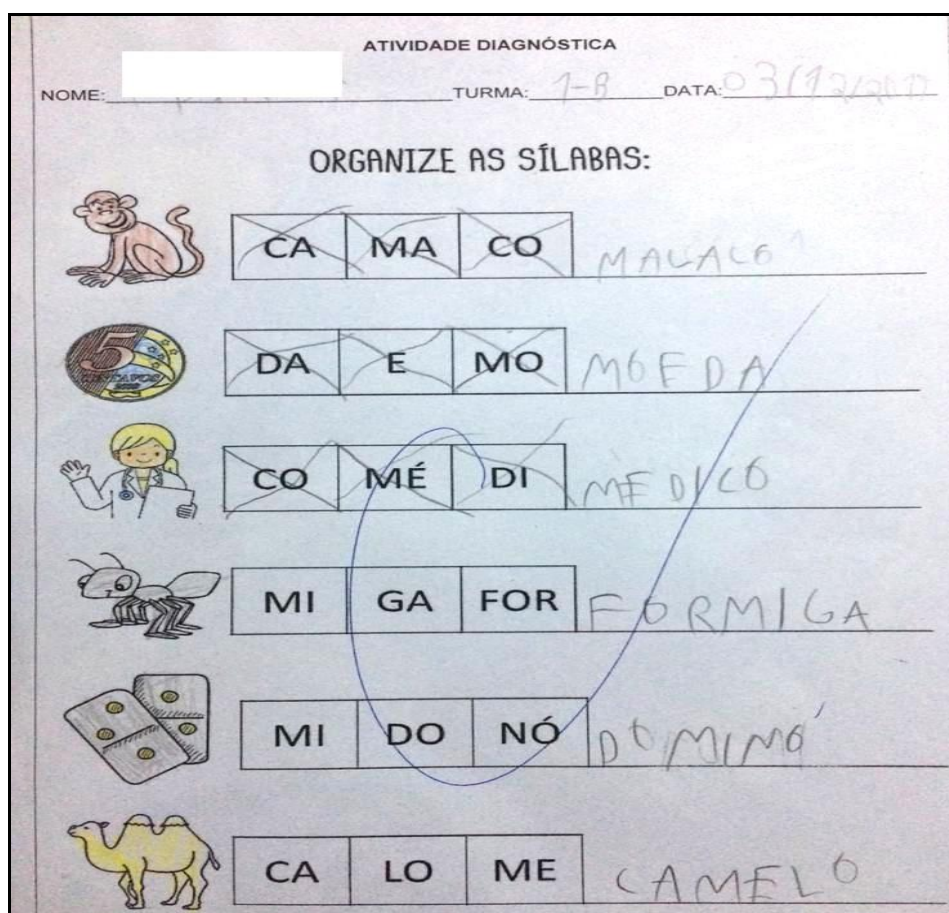 ATIVIDADE DIAGNÓSTICA
NOME: TURMA: 1-B DATA: 03/12/2017
ORGANIZE AS SÍLABAS:
CA MA CO MACACO
5
DA E MO MOEDA
CO MÉ DI MÉDICO
MI GA FOR FORMIGA
MI DO NÓ DOMIMÓ
CA LO ME CAMELO